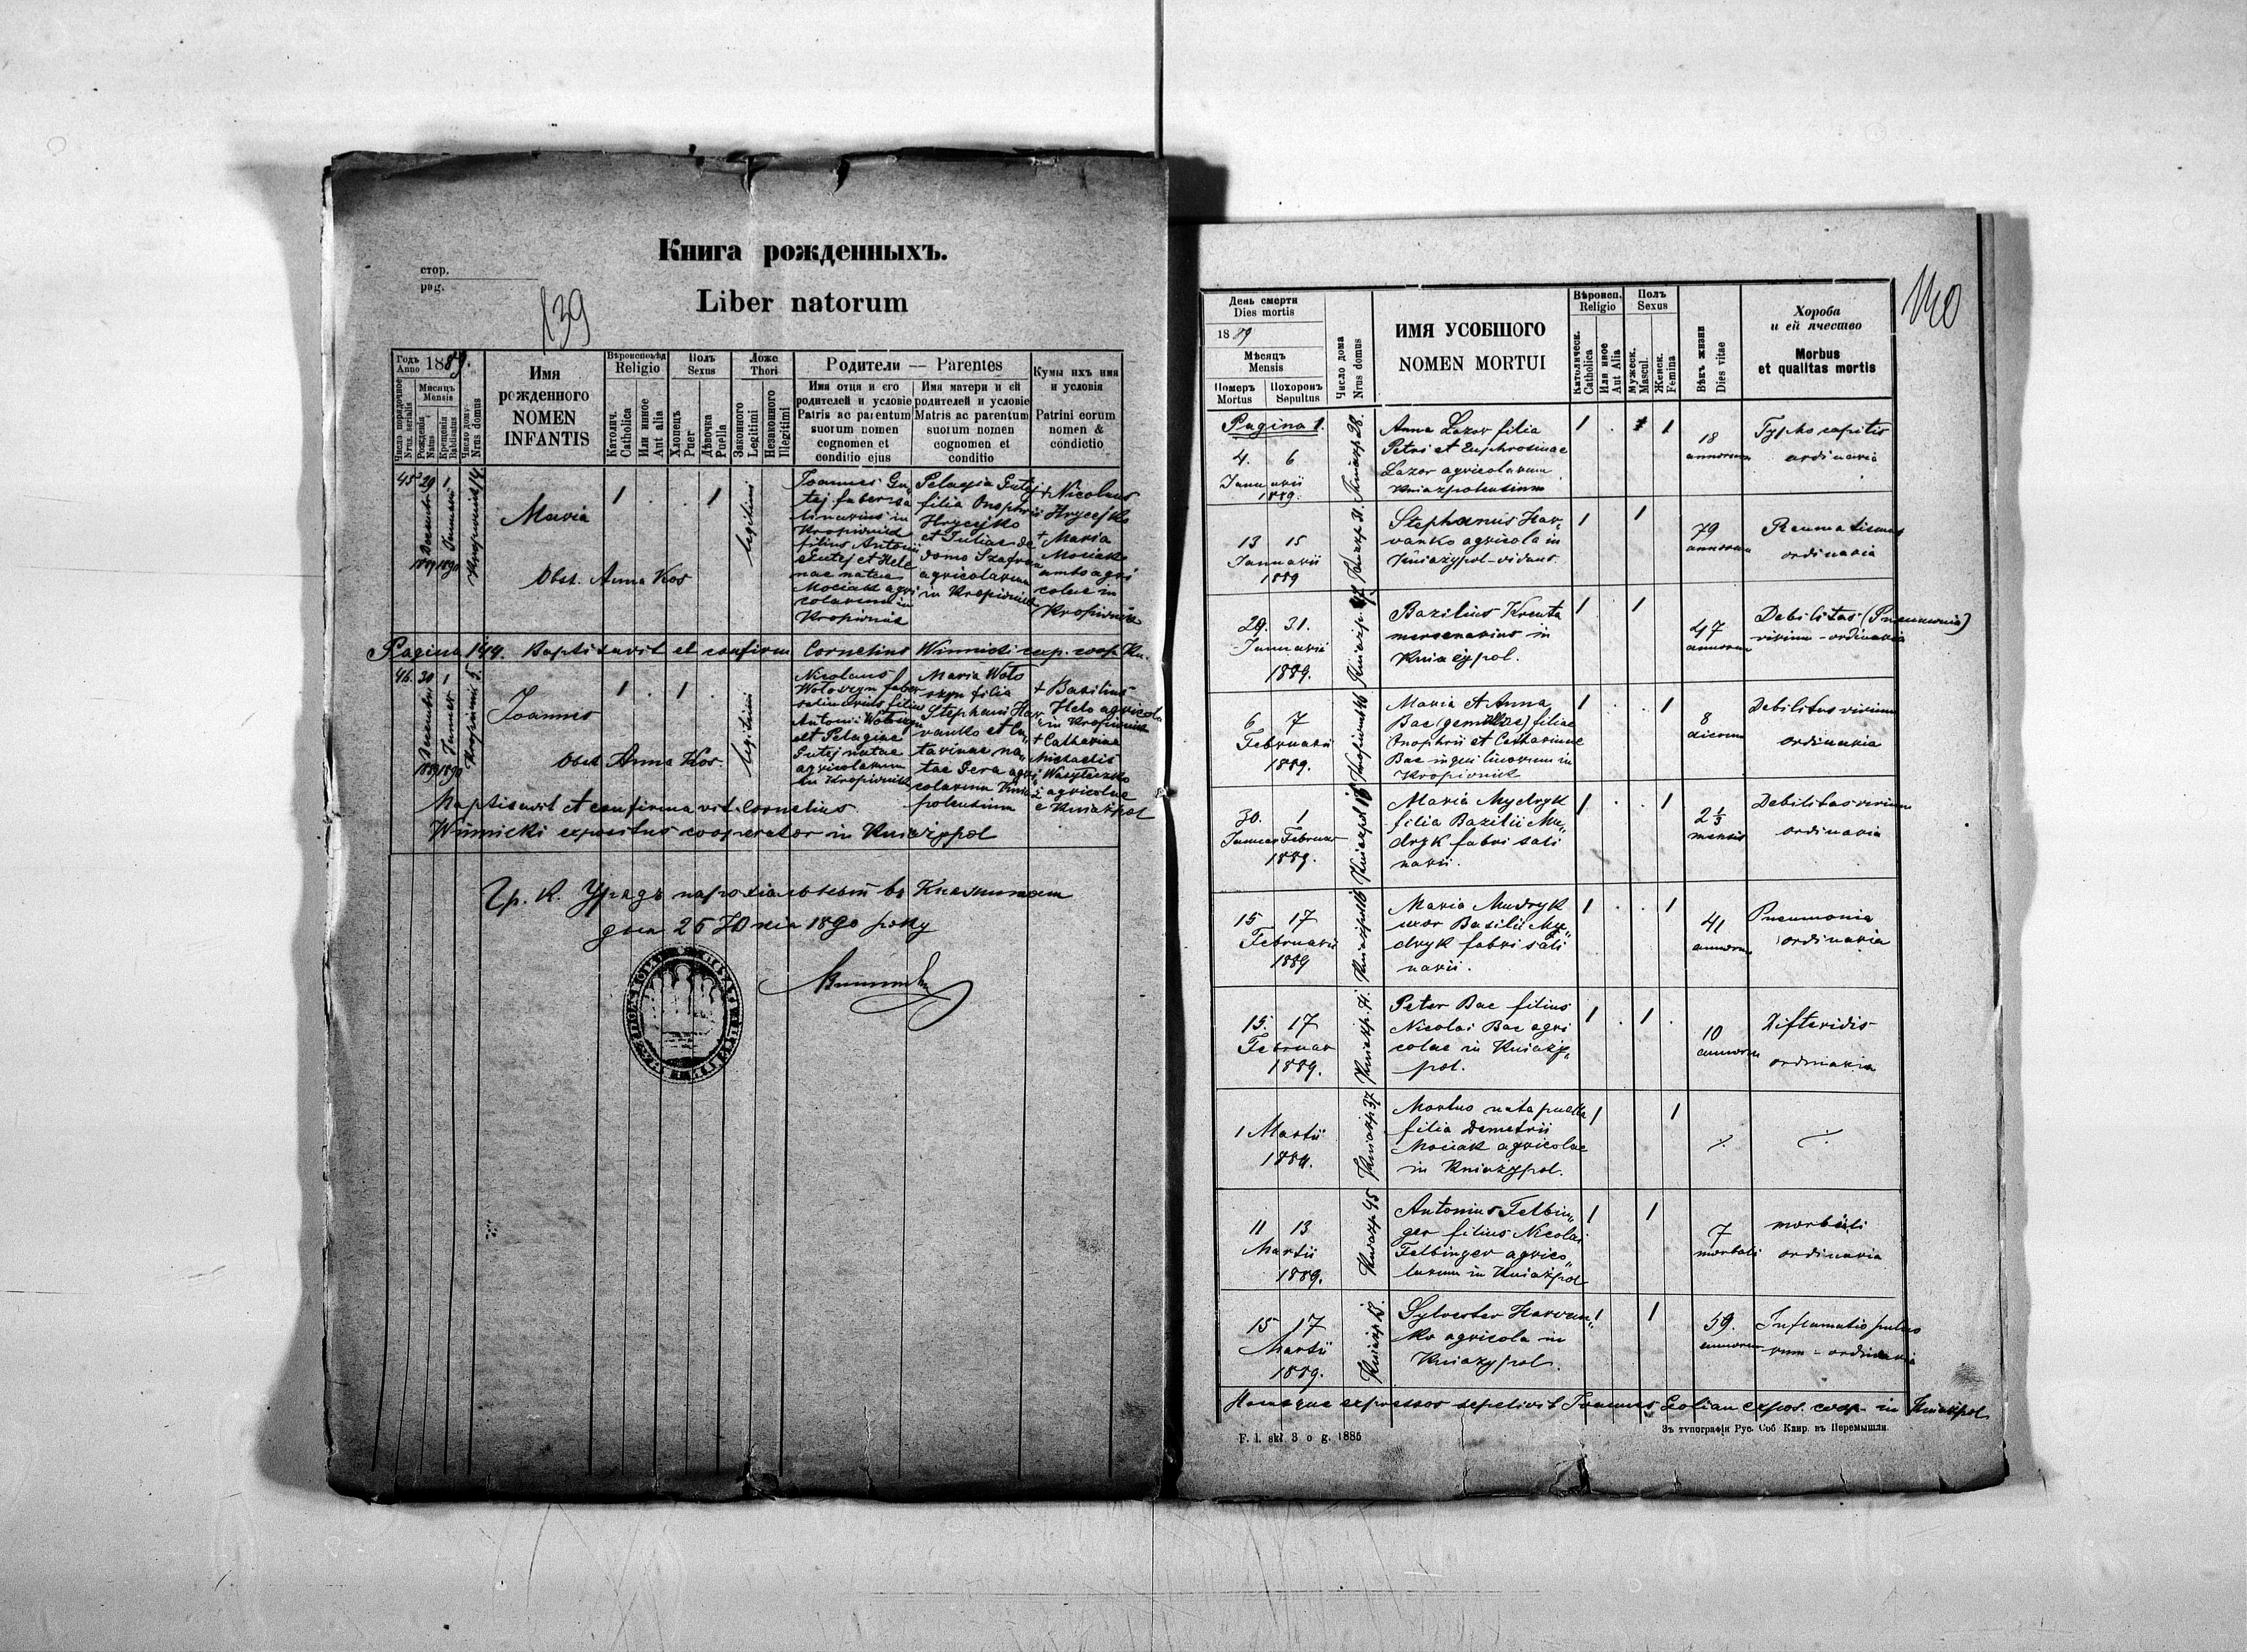 Книга рожденныхъ.
стор.
pag.
139
Liber natorum
Годъ
Anno
1889.
Числа порядочное
Nrus. serialis
Мѣсяць
Mensis
Рожденія
Natus
Крещенія
Babtisatus
Число дому
Nrus domus
Имя
рожденного
NOMEN
INFANTIS
Вѣроисповѣд
Religio
Католич.
Catholica
Или инное
Aut alia
Полъ
Sexus
Хлопецъ
Puer
Дѣвочка
Puella
Ложе
Thori
Законного
Legitimi
Незаконного
Illegitimi
Родители — Parentes
Имя отця и его
родителей и условіе
Patris ac parentum
suorum nomen
cognomen et
conditio ejus
Имя матери и ей
родителей и условіе
Matris ac parentum
suorum nomen
cognomen et
conditio
Кумы ихъ имя
и условія
Patrini eorum
nomen &
condictio
45 29 1
Decembris Januarii
1889 1890
Kropiwnik 14.
Maria
Obst. Anna Kos
1 . . 1
legitimi
Joannes Gu
tej faber sa
linarius in
Kropiwnik
filius Antonii
Gutej et Hele
nae natae
Mociak agri
colarum in
Kropiwnik
Pelagia Gutej
filia Onophrii
Hrycejko
et Juliae de
domo Szafran
agricolarum
in Kropiwnik
+ Nicolaus
Hrycejko
+ Maria
Mociak
ambo agri
colae in
Kropiwnik
Pagina 149. Baptisavit et confirm Cornelius Winnicki exp. coop. Kn.
46. 30 1
Decembris Januar
1889 1890
Kropiwnik 5.
Joannes
Obst Anna Kos.
1 . 1 .
legitimi
Nicolaus
Wołoszyn faber
salinarius filius
Antonii Wołoszyn
et Pelagiae
Gutej natae
agricolarum
in Kropiwnik
Maria Woło
szyn filia
Stephani Har
vanko et Ca
tarinae na
tae Gera agri
colarum Kniaż
polensium
+ Basilius
Helo agricola
in Kropiwnik
+ Catharina
Michaelis
Wasyleczko
agricolae
e Kniażpol
Baptisavit et confirmavit Cornelius
Winnicki expositus cooperator in Kniażypol
Гр. К. Урядъ парохіальный въ Княжполи
дня 26 Юнія 1890 року
День смерти
Dies mortis
1889
Мѣсяць
Mensis
Померъ
Mortus
Похоронъ
Sepultus
Число дома
Nrus domus
ИМЯ УСОБШОГО
NOMEN MORTUI
Вѣроисп.
Religio
Католическ.
Catholica
Или иное
Aut Alia
Полъ
Sexus
Мужеск.
Mascul.
Женск.
Femina
Вѣкъ жизни
Dies vitae
Хороба
и ей ячество
Morbus
et qualitas mortis
140
Pagina 1.
4. 6
Januarii
1889.
Kniażp 28.
Anna Lazor filia
Petri et Euphrosinae
Lazor agricolarum
Kniażpolensium
1 . 1
18
annorum
Typho capitis
ordinaria
13 15
Januarii
1889
Kniażp 31.
Stephanus Har„
vanko agricola in
Kniażypol - viduus.
1 1
79
annorum
Reumatismus
ordinaria
29. 31.
Januarii
1889.
Kniażp. 47.
Bazilius Kruta
mersenarius in
Kniażypol.
1 1
47
annorum
Debilitas (Pneumonia)
virium - ordinaria
6 7
Februarii
1889.
Kropiwnik 46
Maria et Anna
Bac (gemellae) filiae
Onophrii et Catharinae
Bac inquilinorum in
Kropiwnik
1 . . 1
8
dierum
Debilitas virium
ordinaria
30. 1
Januar Februar
1889.
Kniażpol 16
Maria Mydryk
filia Bazilii Mu„
dryk fabri sali
narii.
1 . . 1
2 1/3
mensis
Debilitas virium
ordinaria
15 17
Februarii
1889
Kniażpol 16
Maria Mudryk
uxor Basilii My„
dryk fabri sali
narii.
1 . . 1
41
annorum
Pneumonia
ordinaria
15. 17
Februar
1889.
Peter Bac filius
Nicolai Bac agri
colae in Kniaży„
pol.
1 . 1 .
10
annorum
Difteridis
ordinaria
1 Martii
1889.
Kniażp 37
Mortuo nata puella
filia Demetrii
Mociak agricolae
in Kniażypol.
1 1
11 13
Martii
1889.
Kniażp 45
Antonius Felbin„
ger filius Nicolai
Felbinger agrico„
larum in Kniażpol
1 1
7
morbili
ordinaria
15 17
Martii
1889.
Kniażp 13.
Sylvester Harvan„
ko agricola in
Kniażypol.
1 1
59.
annorum
Inflamatio pulmo
num - ordinaria
Hancque expressos sepelivit Joannes Leolian expos. coop in Kniażpol
F. I. skł. 3 o g. 1885
Зъ типографіи Рус. Соб Капр. въ Перемышли.